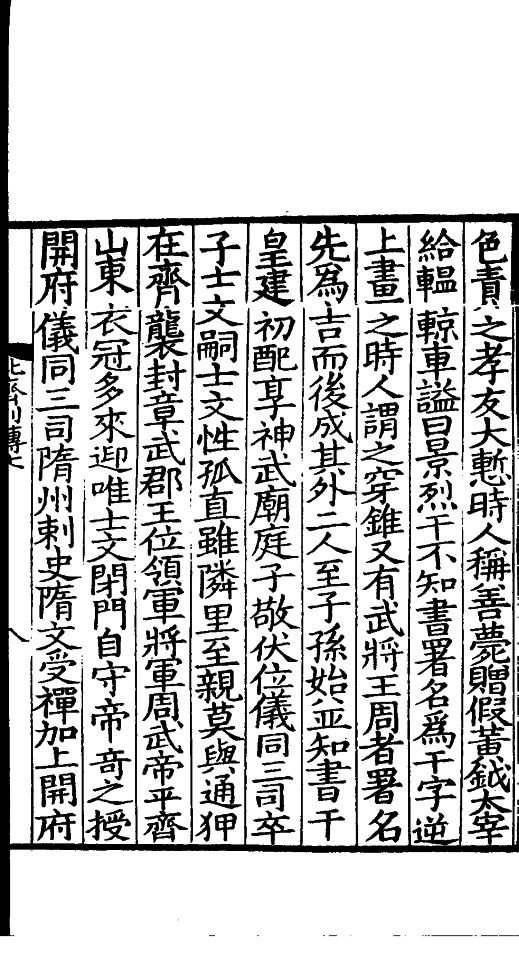 色責之孝友大慙時人稱善薨贈假黃鉞太宰
給轀輬車謚曰景烈干不知書署名爲干字逆
上畫之時人謂之穿錐又有武將王周者署名
先爲吉而後成其外二人至子孫始並知書干
皇建初配享神武廟庭子敬伏位儀同三司卒
子士文嗣士文性孤直雖隣里至親莫與通狎
在齊襲封章武郡王位領軍將軍周武帝平齊
山東衣冠多來迎唯士文閉門自守帝奇之授
開府儀同三司隋州刺史隋文受禪加上開府
北齊列傳七
八